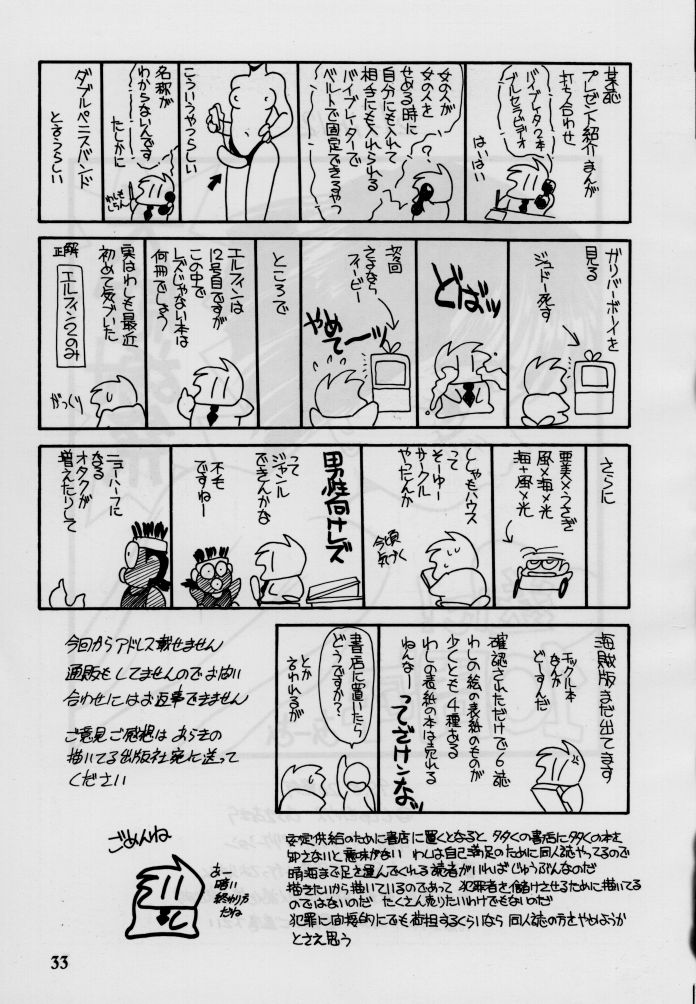 某誌
プレゼント紹介まんが
打ち合わせ
バイブレータ2本
ブルセラビデオ
はーはい
女の人が
女の人を
せめる時に
自分にも入れて
相手にも入れられる
バイブレーターで
ベルトで固定できるやつ
こういうやつらしい
名称が
わからないんです
たしかに
わしも
しらん
ダブルペニスバンド
とゆうらしい
ガリバーボーイを
見る
ジュドー死す
どばッ
次回
さよなら
フィービー
やめて〜ッ
ところで
エルフィンは
12号目ですが
この中で
レズじゃない本は
何冊でしょう
実はわしも最近
初めて気づいた
正解
エルフィン2のみ
がっくり
さらに
亜美×うさぎ
風×海×光
海+風×光
ししゃもハウス
って
そーゆー
サークル
やったんか
今頃
気づく
男性向けレズ
って
ジャンル
できんかな
不毛
ですねー
ニューハーフに
なる
オタクが
増えたりして
海賊版まだ出てます
エックル本
なんか
どーすんだ
確認されただけで6誌
わしの絵の表紙のものが
少くとも4種ある
わしの表紙の本は売れる
ねんなー
ってざけンなッ
書店に置いたら
どうですか?
とか
言われるが
今回からアドレス載せません
通販もしてませんのでお問い
合わせにはお返事できません
ご意見ご感想は あらきの
描いてる出版社宛に送って
ください
ごめんね
あー
暗い
終わり方
だね
安定供給のために書店に置くとなると 多くの書店に多くの本を
知さないと意味がない わしは自己満足のために同人誌やってるので
晴海まで足を運んでくれる読者がいればじゅうぶんなのだ
描きたいから描いているのであって 犯罪者を儲けさせるために描いてる
のではないのだ たくさん売りたいわけでもないのだ
犯罪に間接的にでも荷担するくらいなら 同人誌の方をやめようか
とさえ思う
33